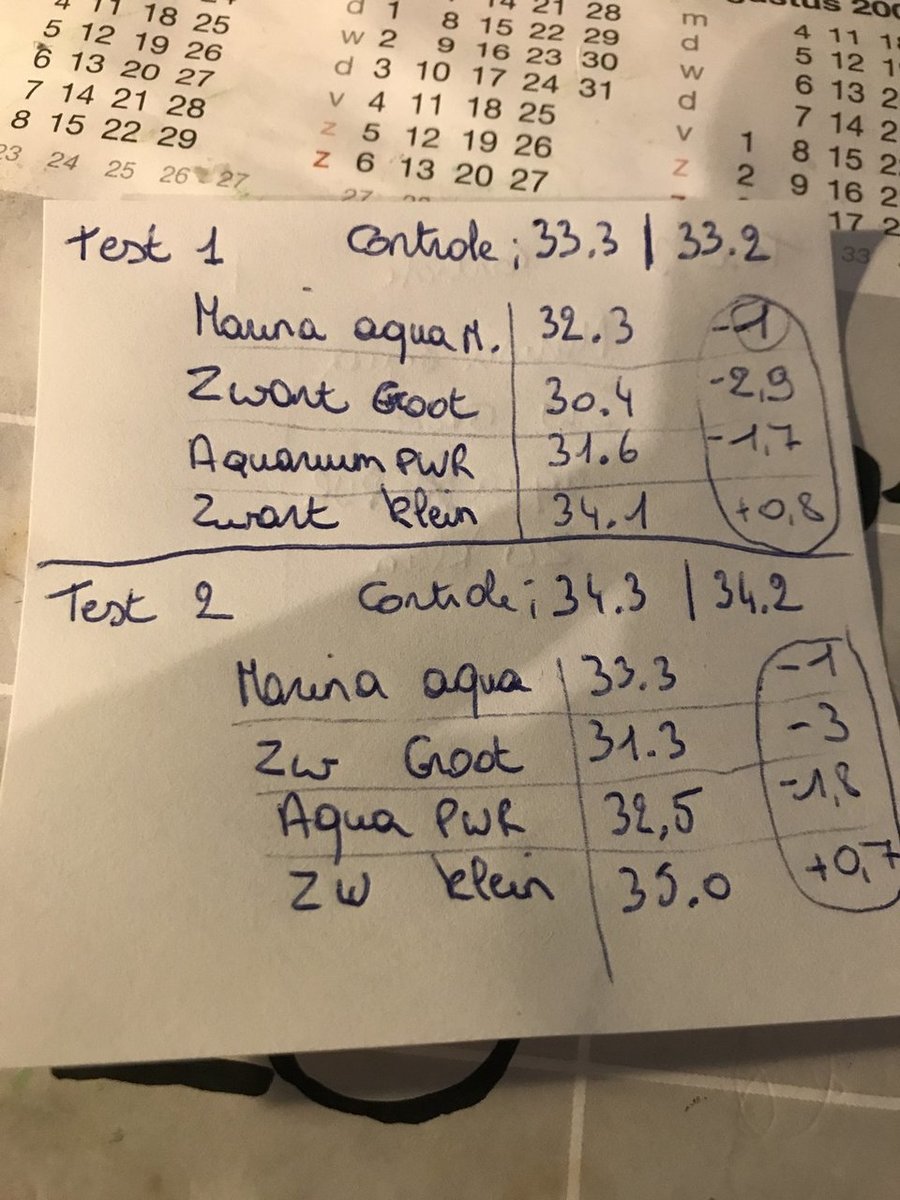 4 11 18 25
5 12 19 26
6 13 20 27
7 14 21 28
8 15 22 29
23 24 25 26 27
d 1 8 15 22 29
w 2 9 16 23 30
d 3 10 17 24 31
v 4 11 18 25
z 5 12 19 26
z 6 13 20 27
14 21 28
m 4 11
d 5 12
w 6 13
d 7 14
v 1 8 15
z 2 9 16
17
33
Test 1 Controle; 33.3 | 33.2
Marina aqua M. 32.3 -1
Zwart Groot 30.4 -2,9
Aquarium PWR 31.6 -1,7
Zwart klein 34.1 +0,8
Test 2 Controle; 34.3 | 34.2
Marina aqua 33.3 -1
Zw Groot 31.3 -3
Aqua PWR 32,5 -1,8
ZW klein 35.0 +0,7